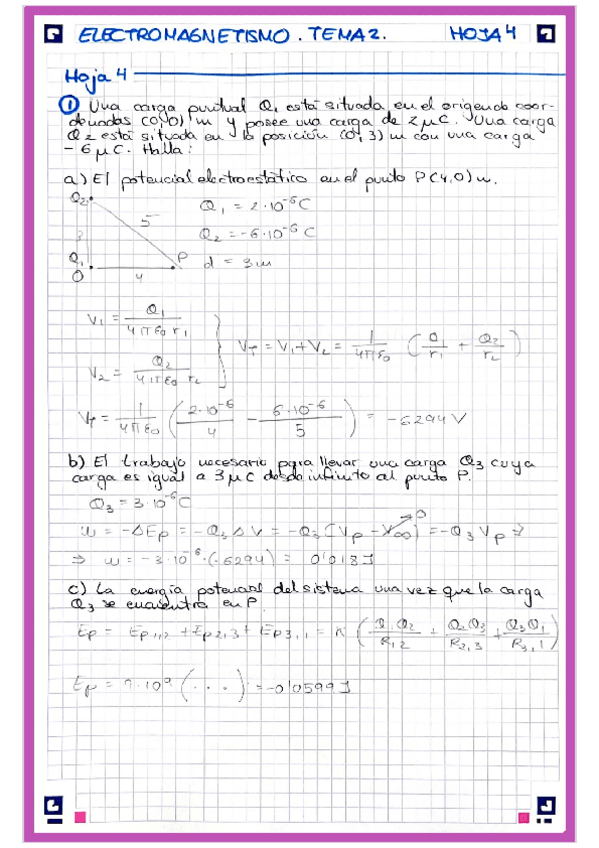 ELECTROMAGNETISMO. TEMA 2. HOJA 4
Hoja 4
① Una carga puntual Q₁ está situada en el origen de coor-
denadas (0,0) m y posee una carga de 2 μC. Una carga
Q₂ está situada en la posición (0,3) m con una carga
-6 μC. Halla:
a) El potencial electrostático en el punto P(4,0) m.
Q₂
5
3
Q₁
O
4
P
Q₁ = 2·10⁻⁶ C
Q₂ = -6·10⁻⁶ C
d = 3 m
V₁ = Q₁ / 4πε₀ r₁
V₂ = Q₂ / 4πε₀ r₂
V_T = V₁ + V₂ = 1/4πε₀ (Q₁/r₁ + Q₂/r₂)
V_T = 1/4πε₀ (2·10⁻⁶/4 - 6·10⁻⁶/5) = -6294 V
b) El trabajo necesario para llevar una carga Q₃ cuya
carga es igual a 3 μC desde infinito al punto P.
Q₃ = 3·10⁻⁶ C
W = -ΔEp = -Q₃ ΔV = -Q₃ [Vp - V∞] = -Q₃ Vp ⇒
0
⇒ W = -3·10⁻⁶·(-6294) = 0'0183 J
c) La energía potencial del sistema una vez que la carga
Q₃ se encuentra en P.
Ep = Ep1,2 + Ep2,3 + Ep3,1 = K (Q₁Q₂/R1,2 + Q₂Q₃/R2,3 + Q₃Q₁/R3,1)
Ep = 9·10⁹ (...) = -0'0599 J